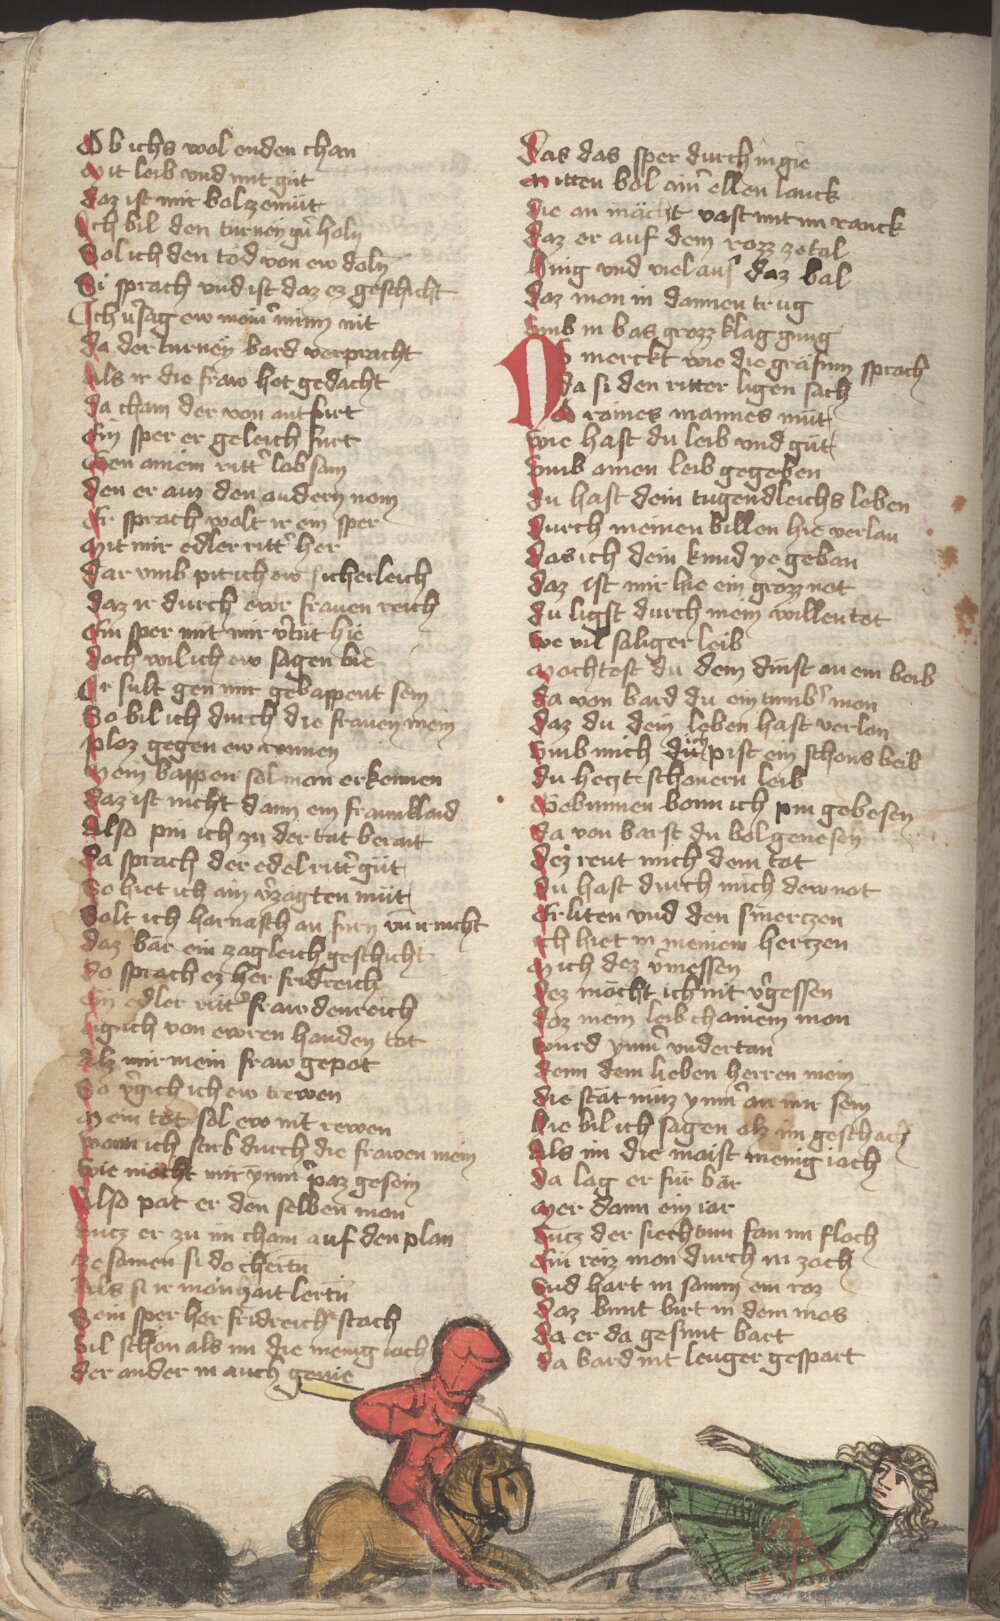 Ob ichs wol enden chan
Mit leib vnd mit gůt
daz ist mir bolzemůt
Ich bil den turney gů holn
Sol ich den tod von ew doln
Si sprach vnd ist daz ez geschicht
Ich v̓sag ew mein̓ minn nit
da der turney bard verpracht
Als ir die fraw het gedacht
da cham der von antfurt
Ein sper er geleich fůrt
Gen ainem ritt̓ lobsam
den er auz den andern nom
Er sprach wolt ir ein sper
Mit mir edler ritt̓ her
Dar vmb pit ich ew sicherleich
daz ir durch ewr frauen reich
Ein sper mit mir v̓tůt hie
doch wil ich ew sagen bie
Ir sult gen mir gebappent sein
So bil ich durch die frauen mein
ploz gegen ew rennen
Mein bappen sol man erkennen
daz ist nicht dann ein fraunklaid
Also pin ich zu der tat berait
da sprach der edel ritt̓ gůt
So hiet ich ain v̓zagten můt
Solt ich harnasch an furn vn ir nicht
daz bär ein zagleich geschicht
do sprach ez her fridreich
Ein edler ritt̓ frawdenreich
lig ich von ewren handen tot
Alz mir mein fraw gepot
So v̓gich ich ew trewen
Mein tot sol ew nit rewen
wann ich stirb durch die frawen mein
wie mocht mir ymm̓ paz gesein
Also pat er den selben man
vntz er zu im cham auf den plan
ze samen si do chertn̄
Als si ir manhait lertn̄
Sein sper her fridreich stach
Vil schon als im die menig iach
der ander in auch genie
Das das sper durch in gie
Mitten bol ain̓ ellen lanck
Die an mächt vast mit im ranck
Daz er auf dem rozz zetal
Hing vnd viel auf daz bal
daz man in dannen trug
vmb in bas grozz klag gnug
Nv merckt wie die gräfinn sprach
da si den ritter ligen sach
Ob raines mannes můt
wie hast du leib vnd gůt
vmb ainen leib gegeben
du hast dein tugendleichs leben
durch meinen billen hie verlan
das ich dein kund ye geban
daz ist mir hie ein grozz not
du ligst durch mein willen tot
we vil saliger leib
Mochtest du dem dinst an ein beib
da von bard du ein tumb̓ man
daz du dein leben hast verlan
vmb mich dů pist ein schons beib
du hegt schonern leib
Gebunnen bann ich pin gebesen
da von barst du bol genesen
Dez reut mich dein tot
du hast durch mich dew not
Erliten vnd den smertzen
ich hiet in meinem hertzen
Mich dez v̓messen
dez mocht ich nit v̓gessen
daz mein leib chainem man
wurd ymm̓ vndertan
denn dem lieben herren mein
die stät muz ymm̓ an mir sein
Hie bil ich sagen alz im geschach
Als im die maist menig iach
da lag er für bär
Mer dann ein iar
vntz der siechtum fan im floch
Ein reiz man durch in zoch
vnd hart in samm ein roz
daz bunt birt in dem mos
da er da gesunt bart
da bard nit lenger gespart